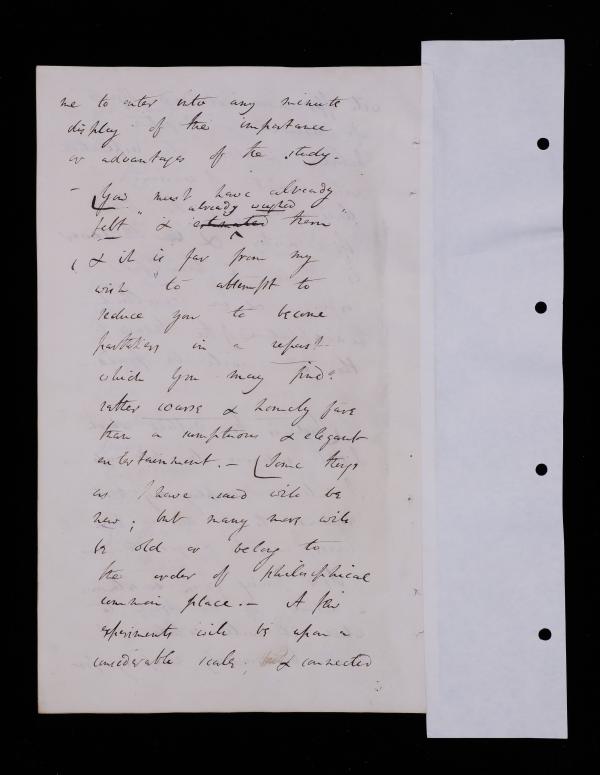 me to enter into any minute
display of the importance
or advantages of the study.
– (You must have already
already weighed
felt " & estimated them "
( & it is far from my
wish " to attempt to
seduce you to become
partakers in a repast
which you may find
rather coarse & homely fare
than a sumptuous & elegant
entertainment. – (Some things
as I have said will be
new; but many more will
be old or belong to
the order of philosophical
common place. – A few
experiments will be upon a
considerable scale, & connected